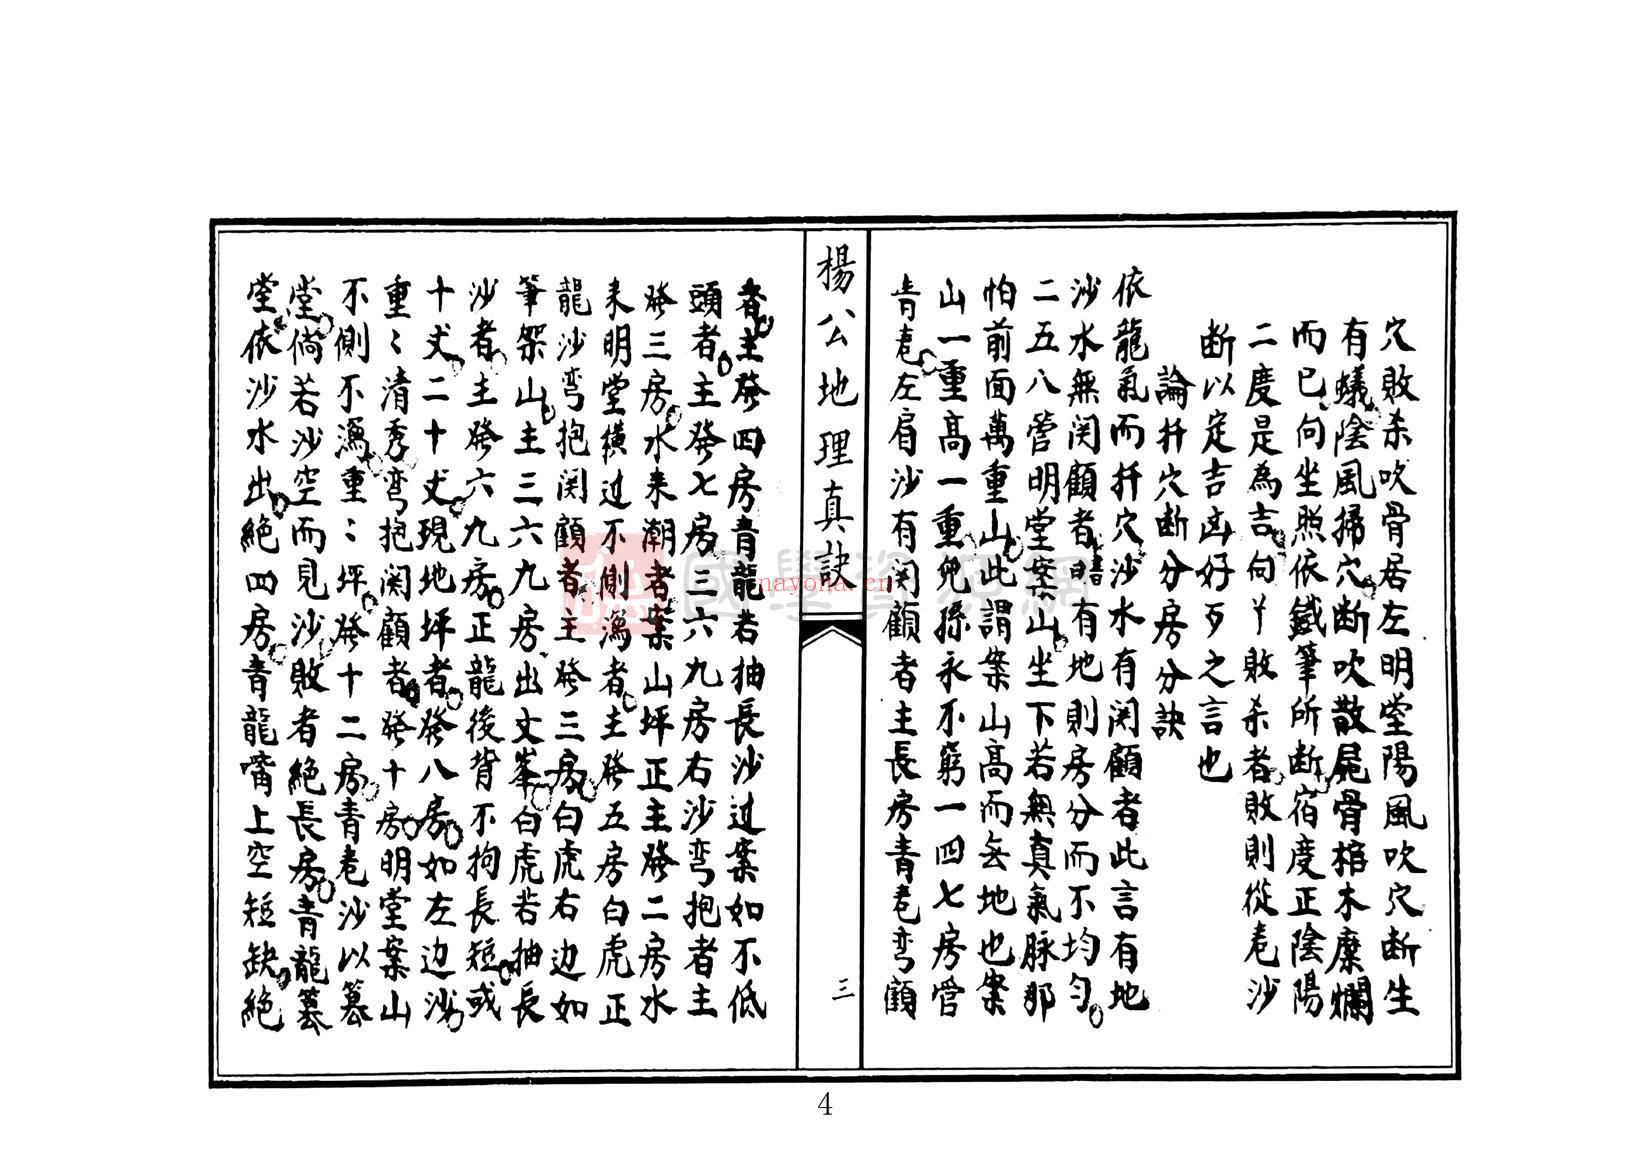 穴敗杀吹骨居左明堂陽風吹穴断生
有蟻陰風掃穴断吹散屍骨棺木糜爛
而已向坐照依鐵筆所断宿度正陰陽
二度是為吉向丫敗杀者敗則從龙沙
断以定吉凶好歹之言也
論扦穴断分房分訣
依龍氣而扦穴沙水有関顧者此言有地
沙水無関顧者有地則房分而不均匀
二五八管明堂案山坐下若無真氣脉那
怕前面萬重山此謂案山高而無地也案
山一重高一重兒孫永不窮一四七房管
青龙左肩沙有関顧者主長房青龙弯顧
楊公地理真訣
三
者主發四房青龍若抽長沙过案如不低
頭者主發七房三六九房右沙弯抱者主
發三房水来潮者案山坪正主發二房水
来明堂横过不側漏者主發五房白虎正
龍沙弯抱関顧者主發三房白虎右边如
筆架山主三六九房出文峯白虎若抽長
沙者主發六九房正龍後背不拘長短或
十丈二十丈現地坪者發八房如左边沙
重〻清秀弯抱関顧者發十房明堂案山
不側不漏重〻坪發十二房青龙沙以墓
堂倘若沙空而見沙敗者絕長房青龍墓
堂依沙水出絕四房青龍嘴上空短缺絕
國學資源網
nayona.cn
4